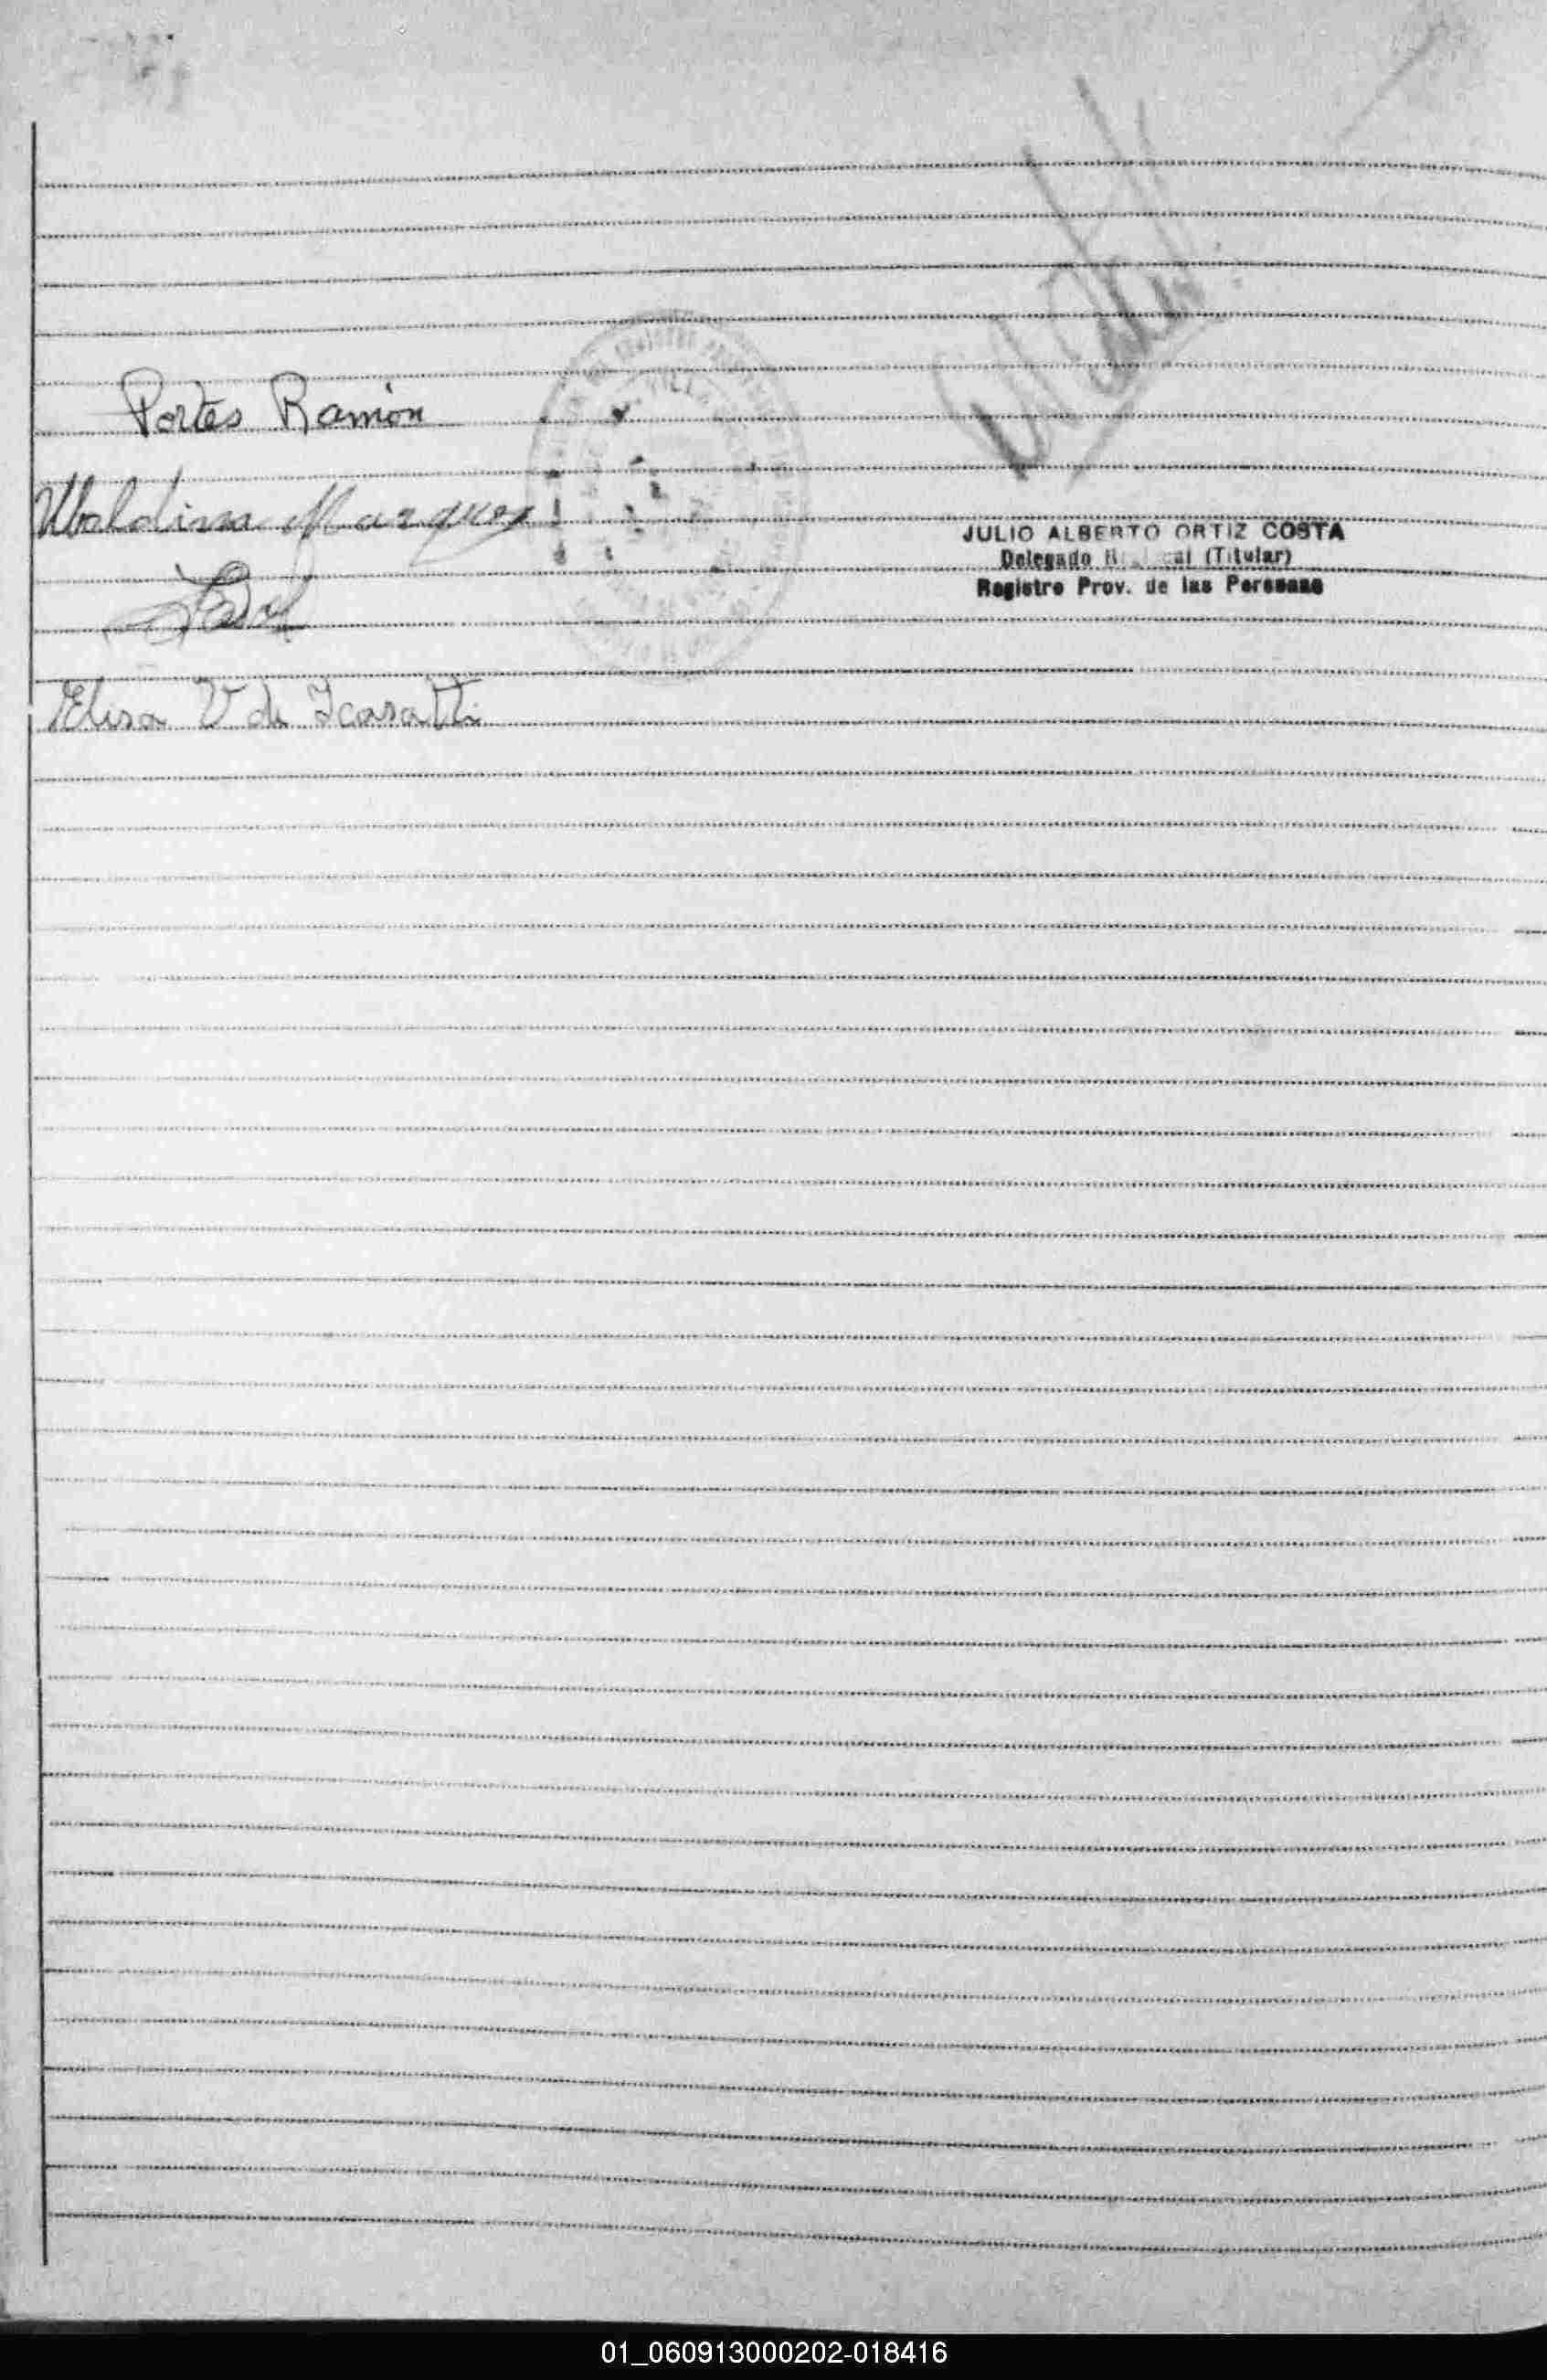 Portes Ramón
Ubaldina Marquez
Elisa V de Icasatti
JULIO ALBERTO ORTIZ COSTA
Delegado (Titular)
Registro Prov. de las Personas
01_060913000202-018416